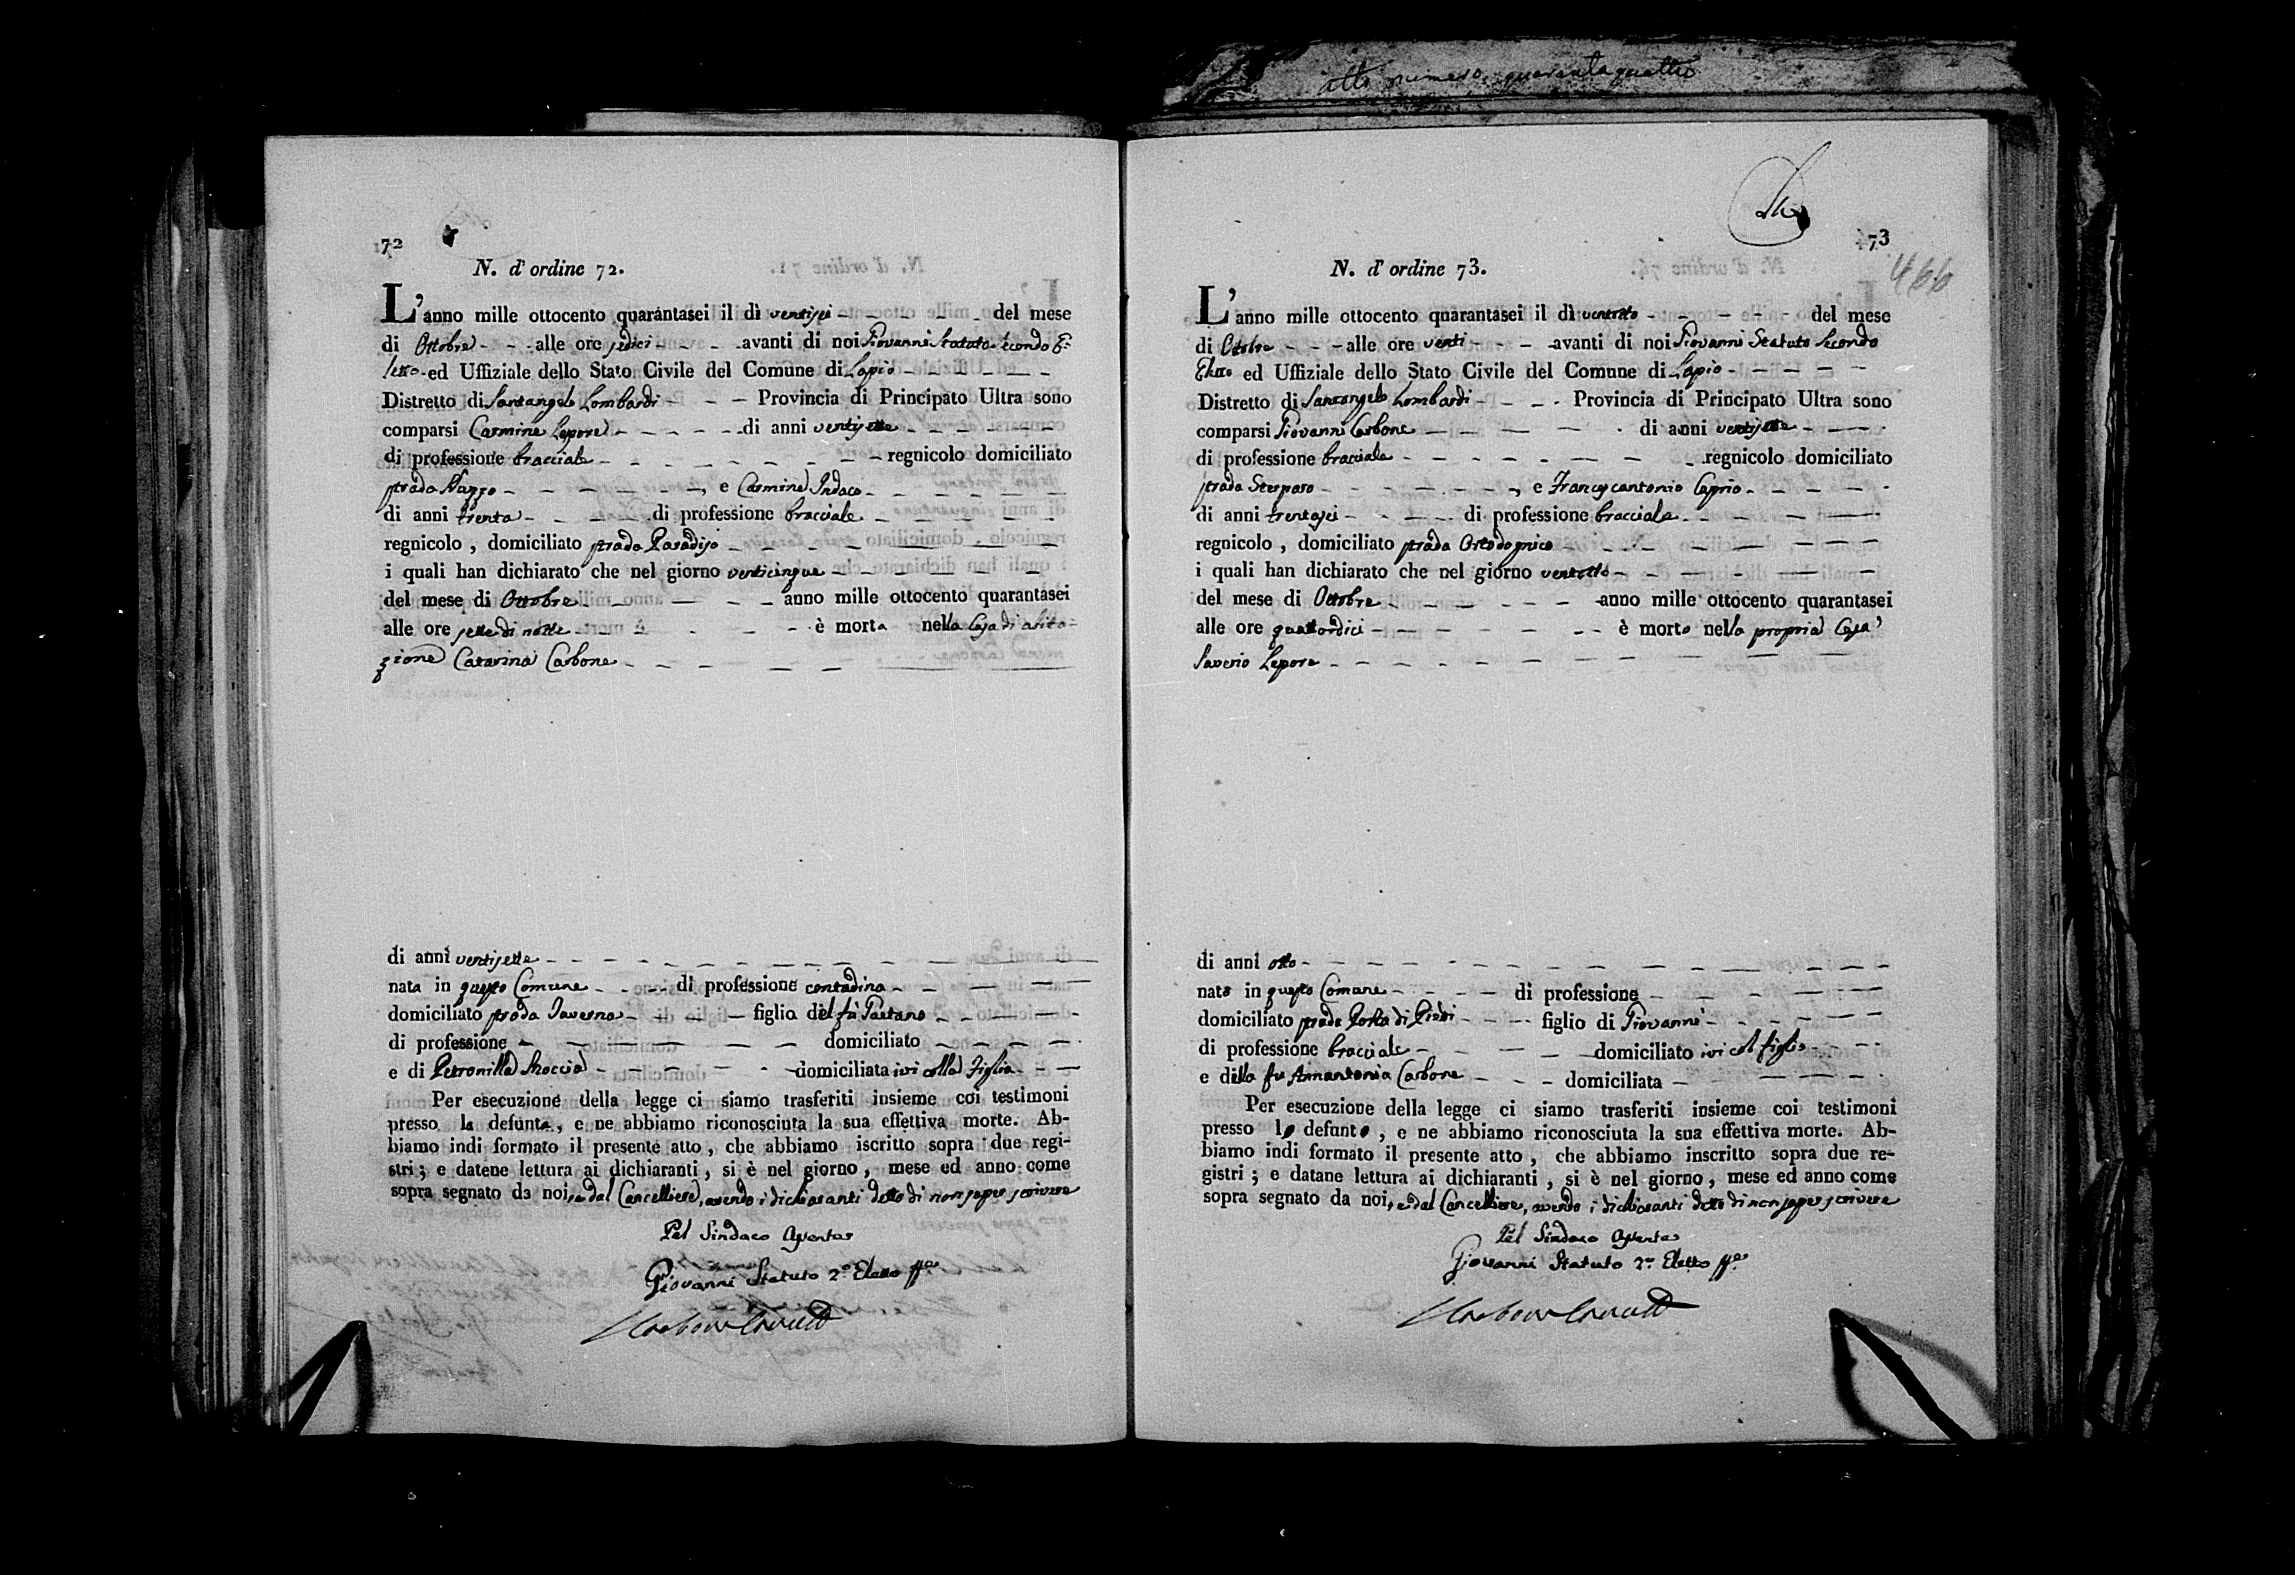 atto numero quarantaquattro
72
N. d'ordine 72.
L'anno mille ottocento quarantasei il dì ventisei del mese
di Ottobre alle ore sedici avanti di noi Giovanni Statuto Secondo E=
letto ed Uffiziale dello Stato Civile del Comune di Lapio
Distretto di Santangelo Lombardi Provincia di Principato Ultra sono
comparsi Carmine Lepore di anni ventisette
di professione bracciale regnicolo domiciliato
strada , e Carmine Indaco
di anni trenta di professione bracciale
regnicolo , domiciliato strada Paradiso
i quali han dichiarato che nel giorno venticinque
del mese di Ottobre anno mille ottocento quarantasei
alle ore sette di notte è morta nella Casa di abita=
zione Catarina Carbone
di anni ventisette
nata in questo Comune di professione contadina
domiciliato strada Taverna figlia del fù Gaetano
di professione domiciliato
e di Petronilla domiciliata ivi colla figlia
Per esecuzione della legge ci siamo trasferiti insieme coi testimoni
presso la defunta, e ne abbiamo riconosciuta la sua effettiva morte. Ab-
biamo indi formato il presente atto , che abbiamo iscritto sopra due regi-
stri ; e datene lettura ai dichiaranti , si è nel giorno , mese ed anno come
sopra segnato da noi, e dal Cancelliere, avendo i dichiaranti detto di non saper scrivere
Pel Sindaco Assente
Giovanni Statuto 2.º Eletto
73
466
N. d'ordine 73.
L'anno mille ottocento quarantasei il dì ventotto del mese
di Ottobre alle ore venti avanti di noi Giovanni Statuto Secondo
Eletto ed Uffiziale dello Stato Civile del Comune di Lapio
Distretto di Santangelo Lombardi Provincia di Principato Ultra sono
comparsi Giovanni Carbone di anni ventisette
di professione bracciale regnicolo domiciliato
strada Sterparo , e Francescantonio Caprio
di anni trentasei di professione bracciale
regnicolo , domiciliato strada
i quali han dichiarato che nel giorno ventotto
del mese di Ottobre anno mille ottocento quarantasei
alle ore quattordici è morto nella propria Casa
Saverio Lepore
di anni otto
nato in questo Comune di professione
domiciliato strada Porta di Piedi figlio di Giovanni
di professione bracciale domiciliato ivi col figlio
e della fu Annantonia Carbone domiciliata
Per esecuzione della legge ci siamo trasferiti insieme coi testimoni
presso lo defunto , e ne abbiamo riconosciuta la sua effettiva morte. Ab-
biamo indi formato il presente atto , che abbiamo inscritto sopra due re-
gistri ; e datane lettura ai dichiaranti , si è nel giorno , mese ed anno come
sopra segnato da noi, e dal Cancelliere, avendo i dichiaranti detto di non saper scrivere
Pel Sindaco Assente
Giovanni Statuto 2.º Eletto